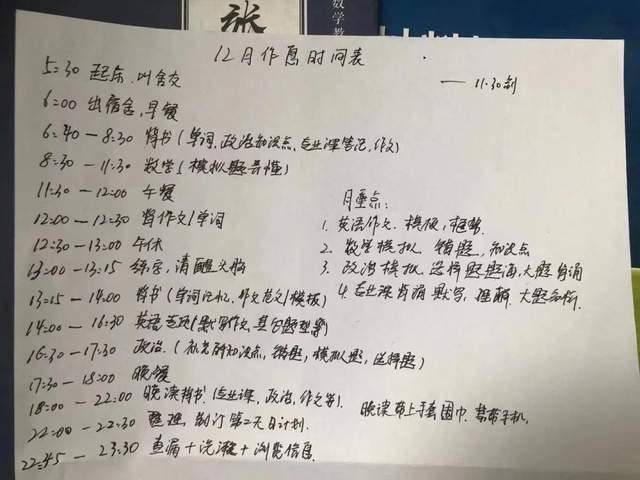 张
数学教
12月作息时间表
— 11.30制
5:30 起床、叫舍友
6:00 出宿舍,早餐
6:40 — 8:30 背书(单词、政治知识点、专业课笔记、作文)
8:30 — 11:30 数学(模拟题弄懂)
11:30 — 12:00 午餐
12:00 — 12:30 背作文/单词
12:30 — 13:00 午休
13:00 — 13:15 练字,清醒头脑
13:15 — 14:00 背书(单词记忆,作文范文/模板)
14:00 — 16:30 英语专项(默写作文,其它题型等)
16:30 — 17:30 政治.(补充知识点,错题,模拟题,选择题)
17:30 — 18:00 晚餐
18:00 — 22:00 晚读背书(专业课,政治,作文等).
22:00 — 22:30 整理,制订第二天日计划.
22:45 — 23:30 查漏+洗漱+浏览信息.
月重点:
1. 英语作文.模板,框架
2. 数学模拟 错题,知识点
3. 政治模拟 选择题题海,大题背诵
4. 专业课背诵 默写,理解,大题分析
晚读带上手套围巾.禁带手机.